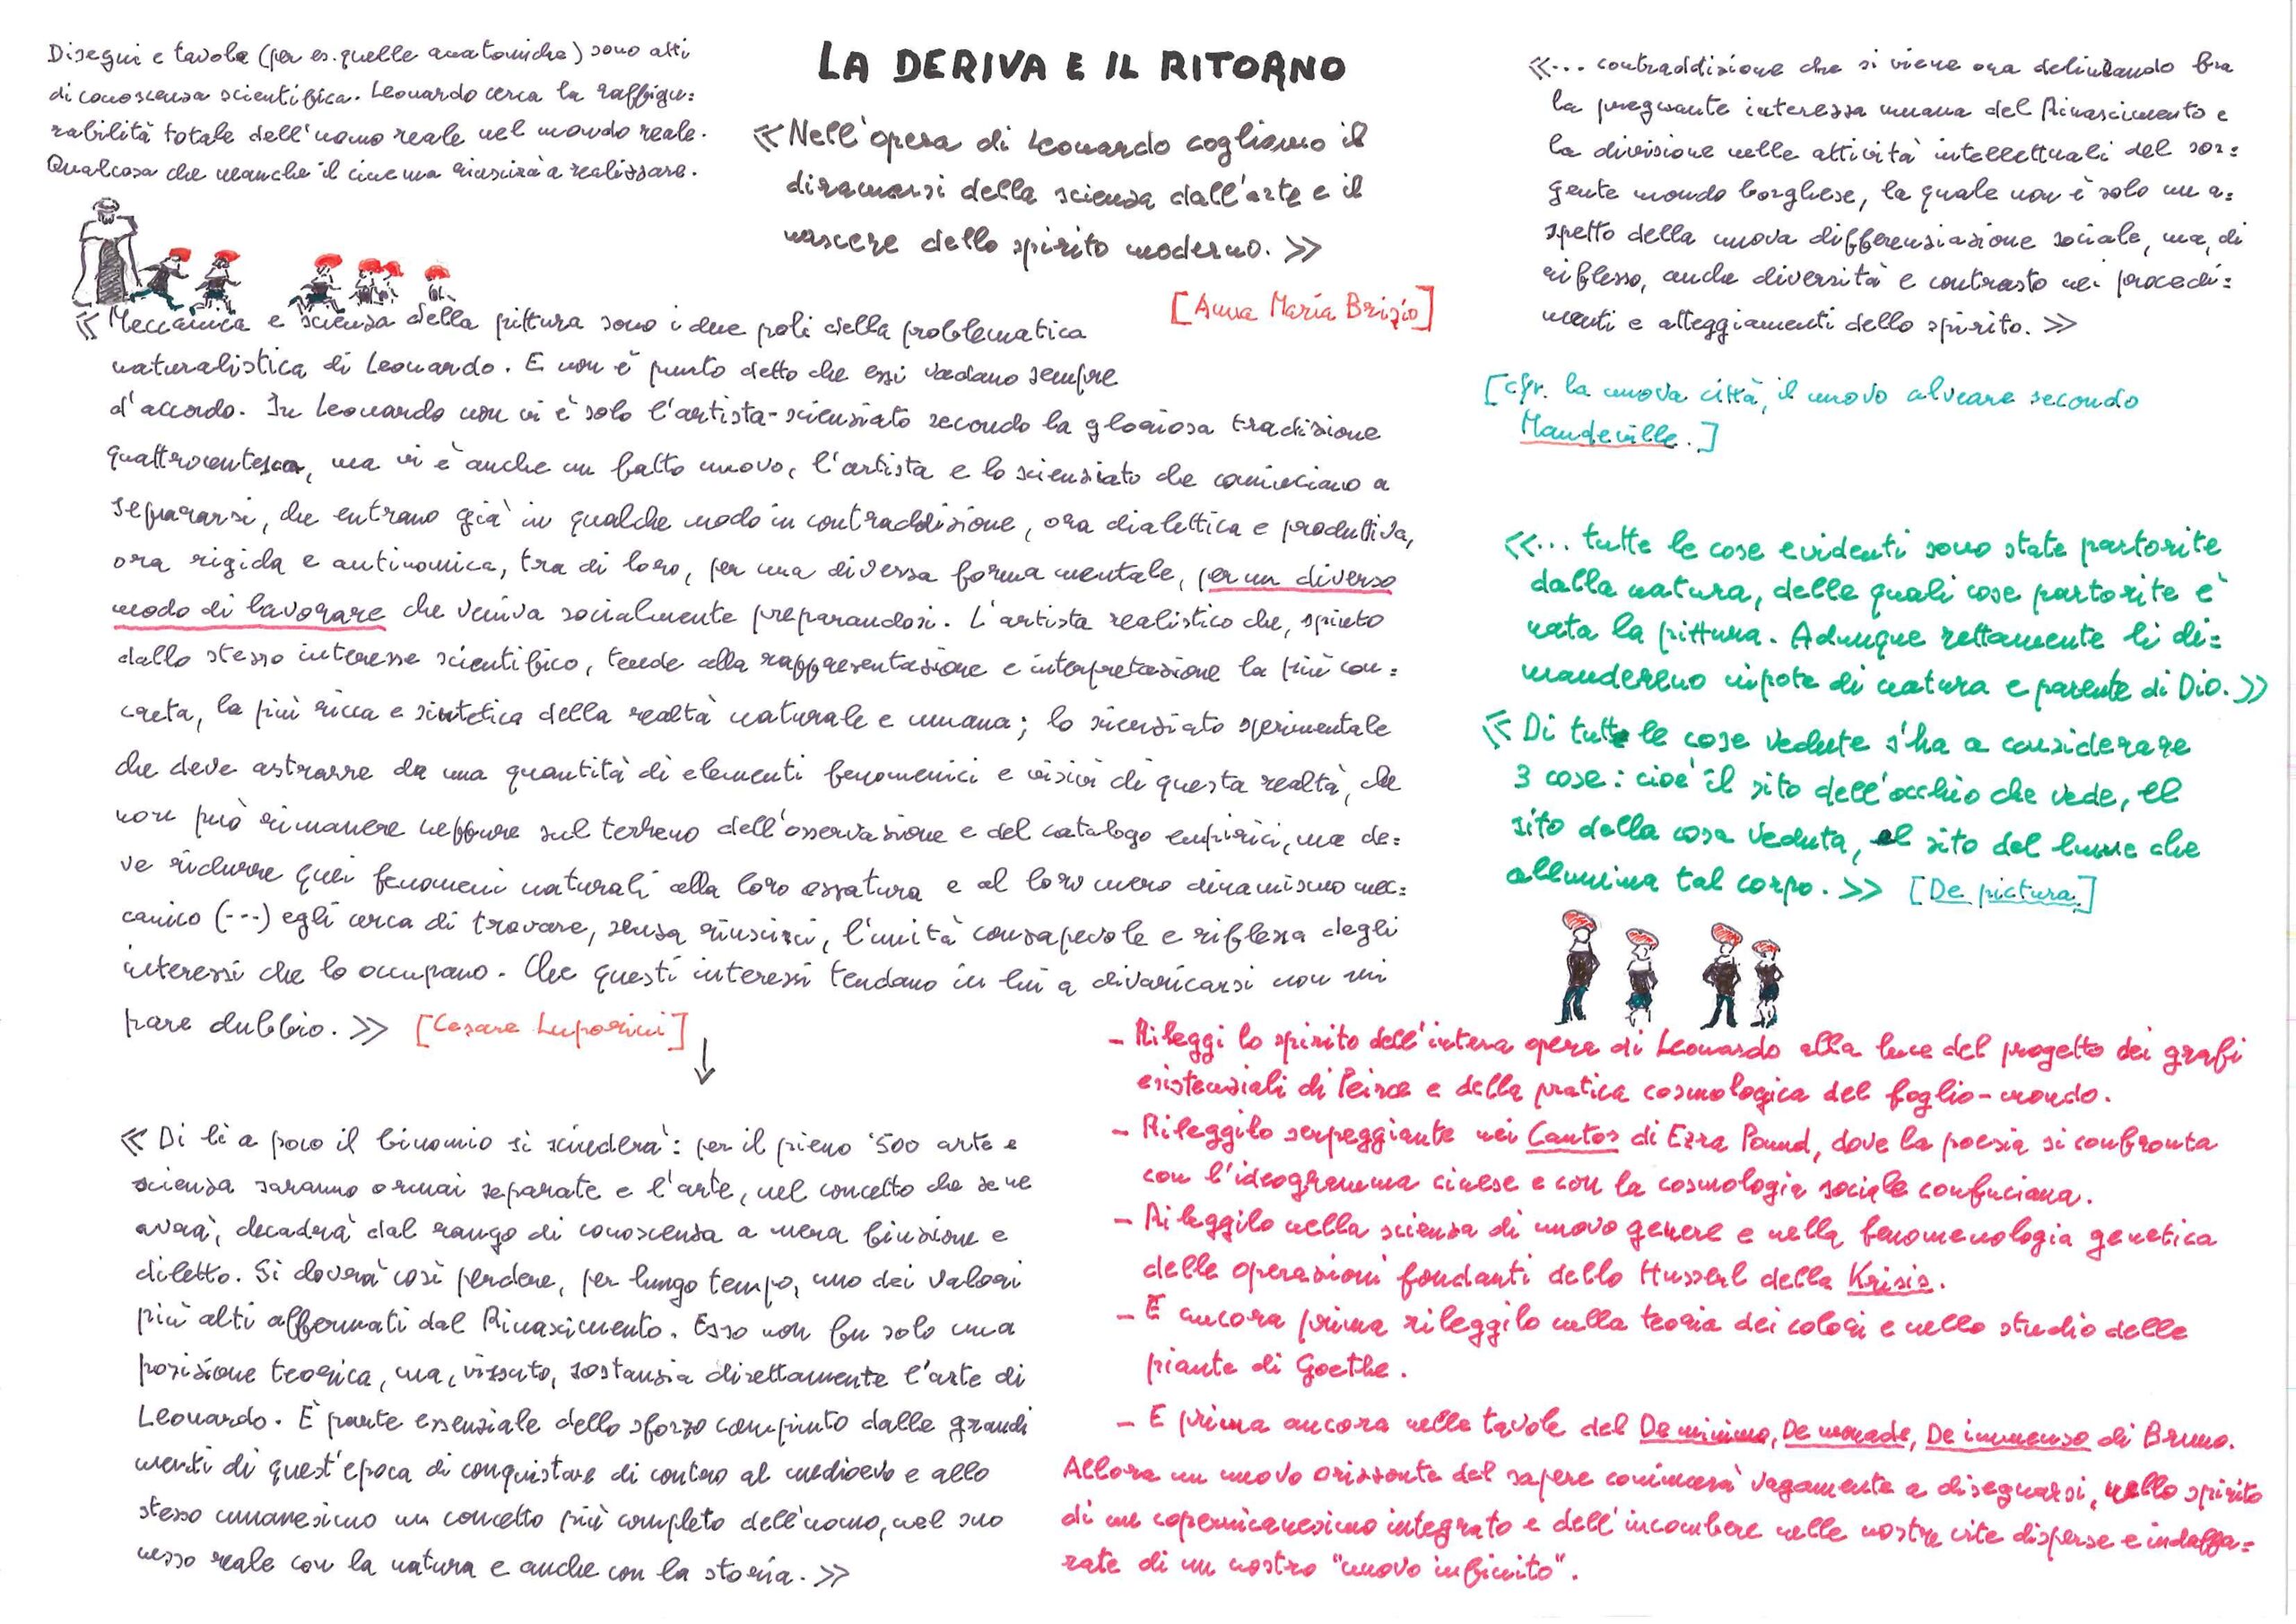 Disegni e tavole (per es. quelle anatomiche) sono atti
di conoscenza scientifica. Leonardo cerca la raffigu=
rabilità totale dell'uomo reale nel mondo reale.
Qualcosa che neanche il cinema riuscirà a realizzare.
LA DERIVA E IL RITORNO
«Nell'opera di Leonardo cogliamo il
diramarsi della scienza dall'arte e il
nascere dello spirito moderno.»
[Anna Maria Brizio]
«Meccanica e scienza della pittura sono i due poli della problematica
naturalistica di Leonardo. E non è punto detto che essi vadano sempre
d'accordo. In Leonardo non vi è solo l'artista-scienziato secondo la gloriosa tradizione
quattrocentesca, ma vi è anche un fatto nuovo, l'artista e lo scienziato che cominciano a
separarsi, che entrano già in qualche modo in contraddizione, ora dialettica e produttiva,
ora rigida e antinomica, tra di loro, per una diversa forma mentale, per un diverso
modo di lavorare che veniva socialmente preparandosi. L'artista realistico che, spinto
dallo stesso interesse scientifico, tende alla rappresentazione e interpretazione la più con=
creta, la più ricca e sintetica della realtà naturale e umana; lo scienziato sperimentale
che deve astrarre da una quantità di elementi fenomenici e visivi di questa realtà, che
non può rimanere neppure sul terreno dell'osservazione e del catalogo empirici, ma de=
ve ridurre quei fenomeni naturali alla loro ossatura e al loro mero dinamismo mec=
canico (---) egli cerca di trovare, senza riuscirci, l'unità consapevole e riflessa degli
interessi che lo occupano. Che questi interessi tendano in lui a divaricarsi non mi
pare dubbio.» [Cesare Luporini]
↓
«Di lì a poco il binomio si scinderà: per il pieno '500 arte e
scienza saranno ormai separate e l'arte, nel concetto che se ne
avrà, decadrà dal rango di conoscenza a mera finzione e
diletto. Si dovrà così perdere, per lungo tempo, uno dei valori
più alti affermati dal Rinascimento. Esso non fu solo una
posizione teorica, ma, vissuto, sostanzia direttamente l'arte di
Leonardo. È parte essenziale dello sforzo compiuto dalle grandi
menti di quest'epoca di conquistare di contro al medioevo e allo
stesso umanesimo un concetto più completo dell'uomo, nel suo
nesso reale con la natura e anche con la storia.»
«... contraddizione che si viene ora delineando fra
la pregnante interezza umana del Rinascimento e
la divisione nelle attività intellettuali del sor=
gente mondo borghese, la quale non è solo un a=
spetto della nuova differenziazione sociale, ma, di
riflesso, anche diversità e contrasto nei procedi=
menti e atteggiamenti dello spirito.»
[cfr. la nuova città, il nuovo alveare secondo
Mandeville.]
«... tutte le cose evidenti sono state partorite
dalla natura, delle quali cose partorite è
nata la pittura. Adunque rettamente li di=
manderemo nipote di natura e parente di Dio.»
«Di tutte le cose vedute s'ha a considerare
3 cose: cioè il sito dell'occhio che vede, el
sito della cosa veduta, el sito del lume che
allumina tal corpo.» [De pictura]
– Rileggi lo spirito dell'intera opera di Leonardo alla luce del progetto dei grafi
esistenziali di Peirce e della pratica cosmologica del foglio-mondo.
– Rileggilo serpeggiante nei Cantos di Ezra Pound, dove la poesia si confronta
con l'ideogramma cinese e con la cosmologia sociale confuciana.
– Rileggilo nella scienza di nuovo genere e nella fenomenologia genetica
delle operazioni fondanti dello Husserl della Krisis.
– E ancora prima rileggilo nella teoria dei colori e nello studio delle
piante di Goethe.
– E prima ancora nelle tavole del De minimo, De monade, De immenso di Bruno.
Allora un nuovo orizzonte del sapere comincerà vagamente a disegnarsi, nello spirito
di un copernicanesimo integrato e dell'incombere nelle nostre vite disperse e indaffa=
rate di un nostro "nuovo infinito".